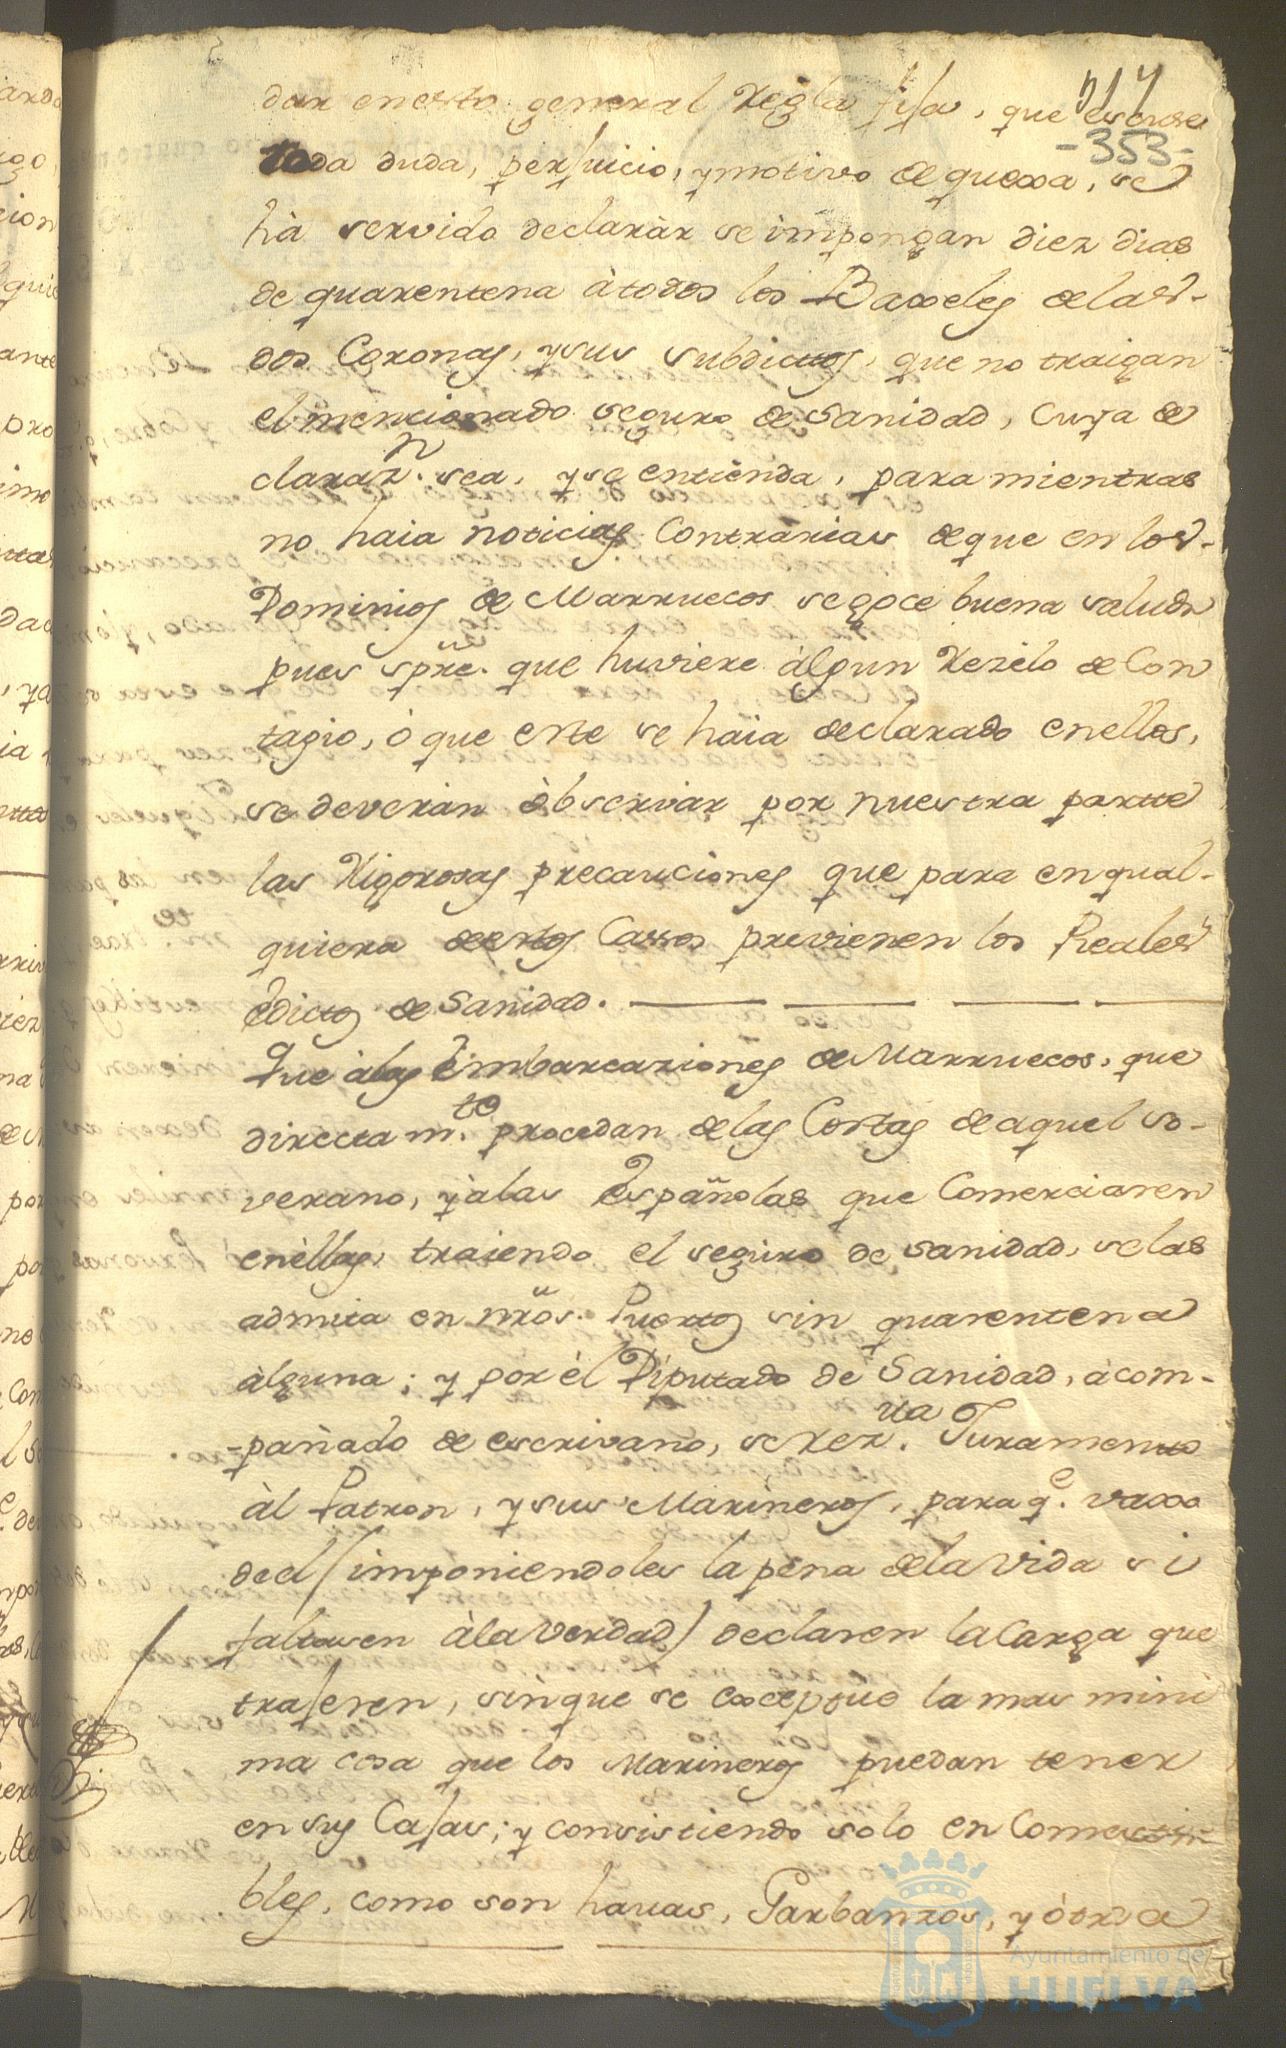 dar en esto general Regla fija, que escuse
toda duda, perjuicio, y motivo de quexa, se
hà servido declaràr se impongan diez dias
de quarentena à todos los Baxeles de las
dos Coronas, y sus subdittos, que no traigan
el mencionado seguro de Sanidad, cuya de
claraz.n sea, y se entienda, para mientras
no haia noticias Contrarias de que en los
Dominios de Marruecos se goce buena salud
pues spre. que huviere àlgun Rezelo de Con
tagio, ó que este se haia declarado en ellos,
se deverán òbservar por nuestra partte
las Rigorosas precauciones que para en qual-
quiera de estos Cassos previenen los Reales
Edictos de Sanidad.
Que à las Embarcaziones de Marruecos, que
directam.te procedan de las Costas de aquel So-
verano, y à las Españolas que Comerciaren
en èllas, traiendo el seguro de sanidad, se las
admita en nros. Puertos sin quarentena
àlguna; y por èl Diputado de Sanidad, àcom-
-pañado de escrivano, se Rez.va Juramento
àl Patron, y sus Marineros, para q.e vaxo
de el (imponiendoles la pena de la Vida si
faltasen à la Verdad) declaren la Carga que
trajeren, sin que se exceptue la mas mini
ma cosa que los Marineros puedan tener
en sus Cajas; y consistiendo solo en Comesti-
bles, como son havas, Garbanzos, y òtra
-353-
Ayuntamiento de
HUELVA